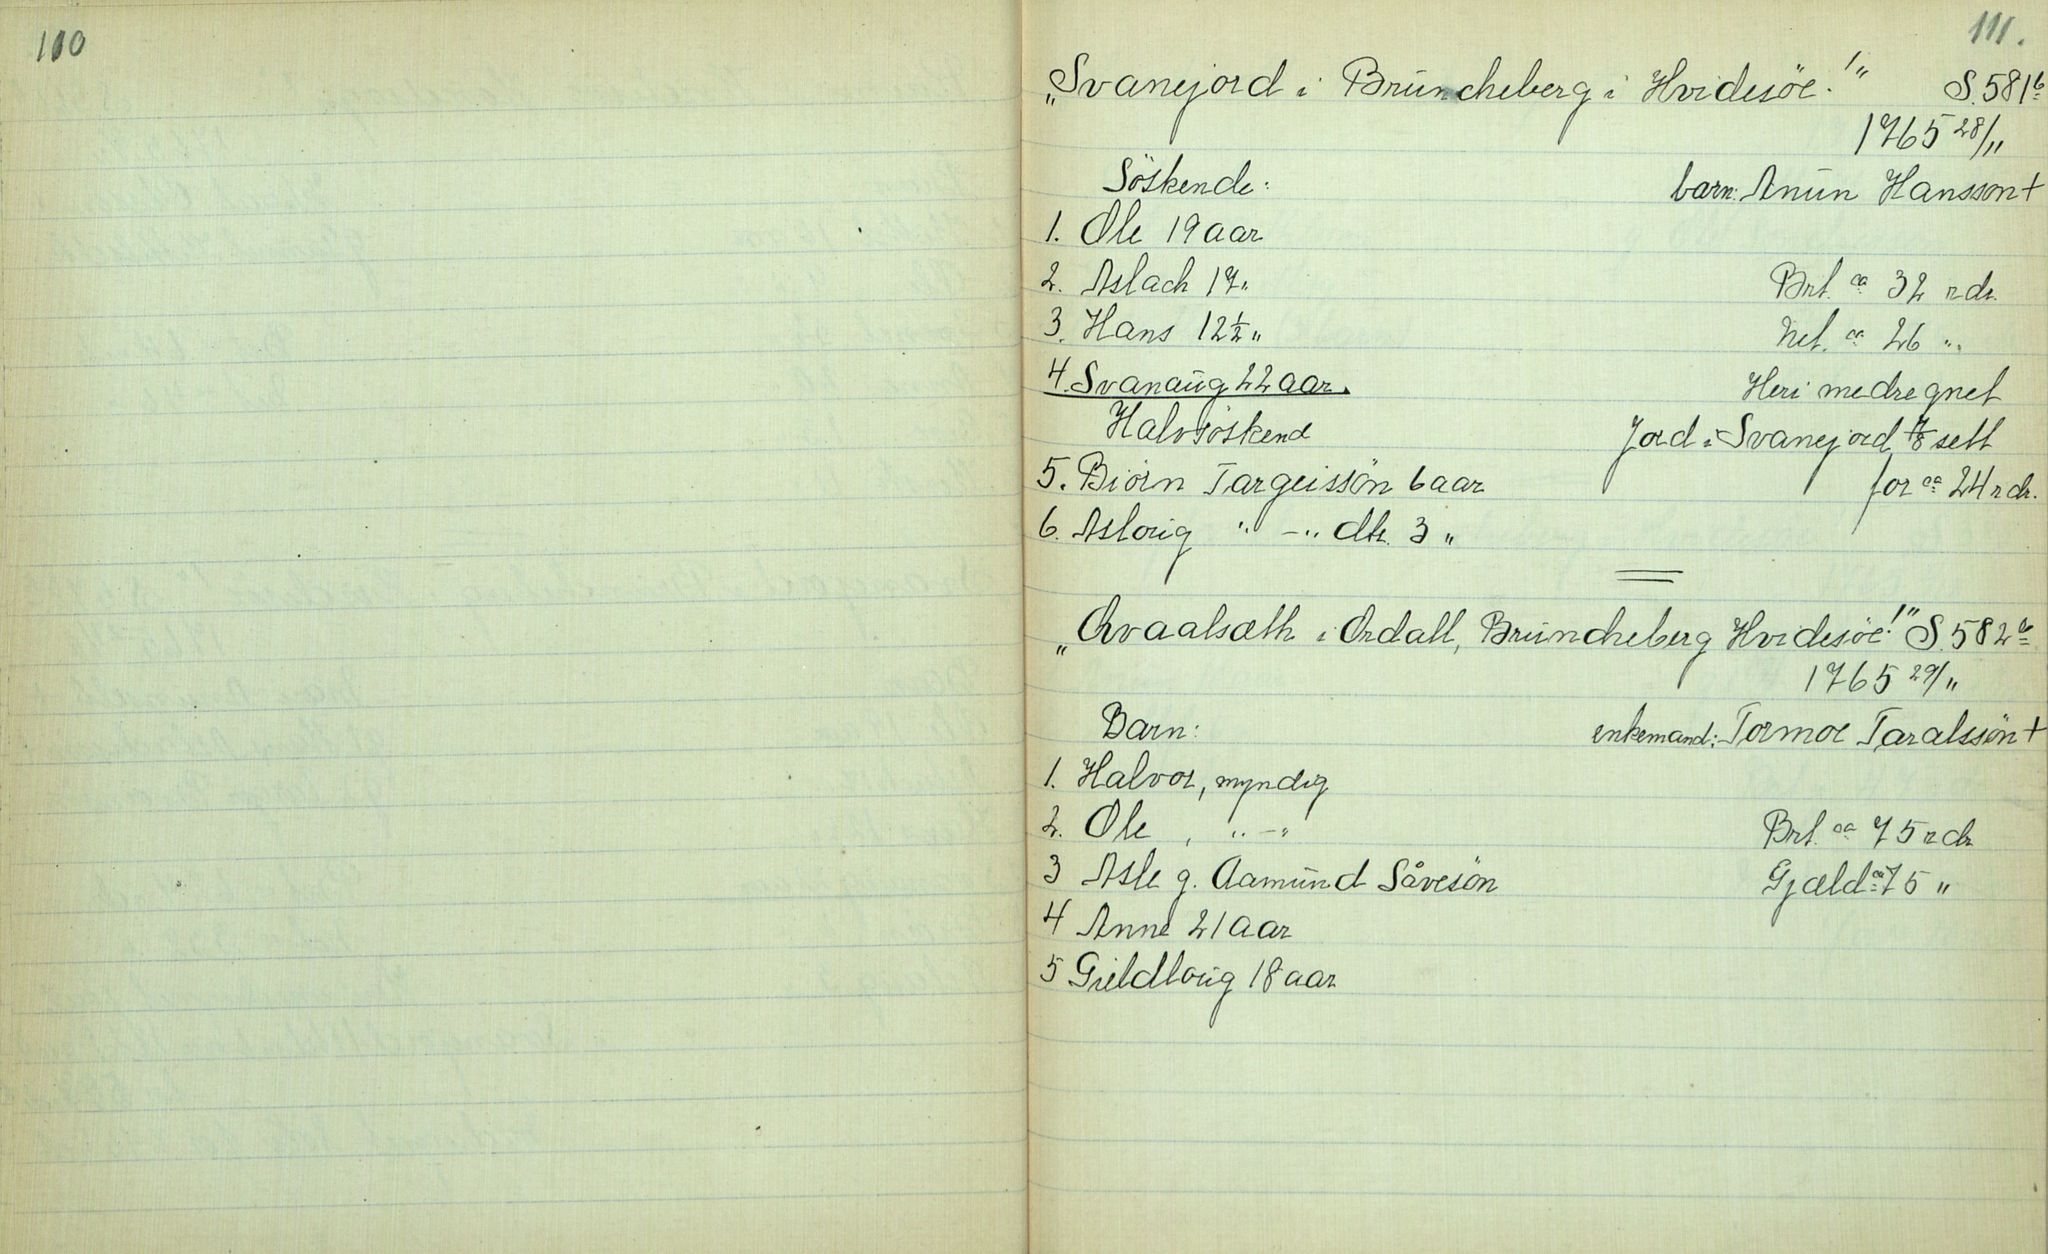 110
111.
„Svanejord i Brüncheberg i Hvidesöe!“ S. 581 b
1765 28/11
Söskende: barn: Anün Hansson +
1. Ole 19 aar
2. Aslach 17 „ Brt. ca 32 rdr.
3. Hans 12½ „ Net. ca 26 „
4. Svanaüg 22 aar. Heri medregnet
Halvsöskend Jord i Svanejord sett
5. Biörn Targeissön 6 aar for ca 24 rdr.
6. Asloüg „ – „ dtr. 3 „
„Qvaalsæth i Ordall, Brüncheberg Hvidesöe!“ S. 582
1765 29/11
Barn: enkemand: Tormoe Taralssön +
1. Halvor, myndig
2. Ole , „ – „ Brt. ca 75 rdr
3 Asle g. Aamünd Såvesön Gjæld ca 75 „
4 Anne 21 aar
5 Gieldloüg 18 aar